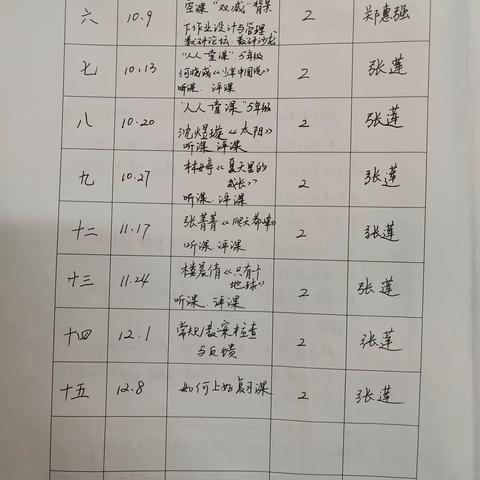 六 10.9 空课"双减"背景 2 郑惠强
下作业设计与管理
教研论坛、教研沙龙
七 10.13 "人人一堂课"5年级 2 张莲
何晓《少年中国说》
听课、评课
八 10.20 "人人一堂课"5年级 2 张莲
沈煜璇《太阳》
听课、评课
九 10.27 林婷《夏天里的 2 张莲
成长》
听课、评课
十二 11.17 张菁菁《爬天都峰》 2 张莲
听课、评课
十三 11.24 楼晨倩《只有一个 2 张莲
地球》
听课、评课
十四 12.1 常规/教案检查 2 张莲
与反馈
十五 12.8 如何上好复习课 2 张莲